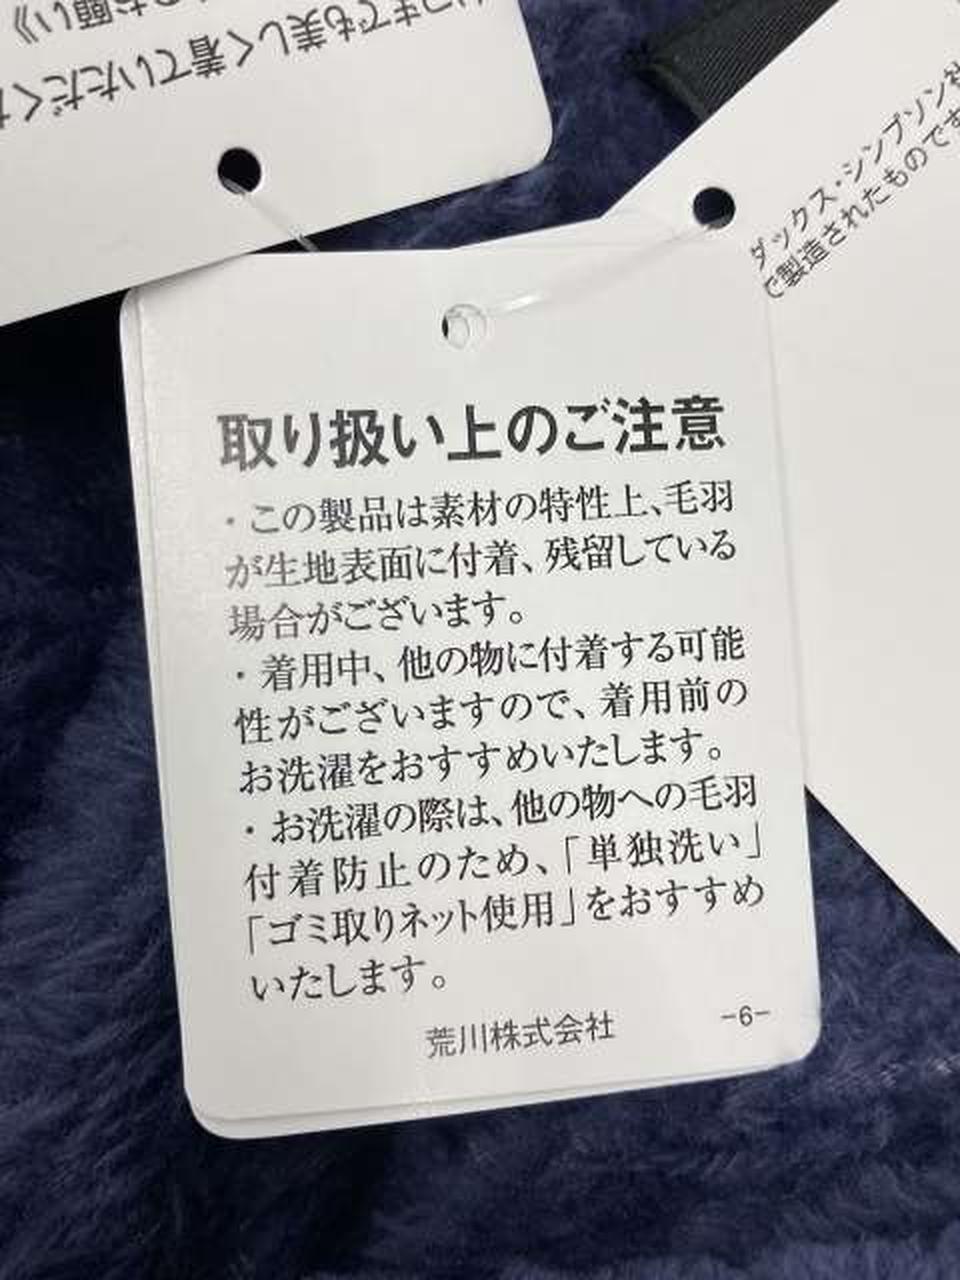 いつまでも美しく着ていただくた
のお願い》
ダックス・シンプソン社
で製造されたものです
取り扱い上のご注意
・この製品は素材の特性上、毛羽
が生地表面に付着、残留している
場合がございます。
・着用中、他の物に付着する可能
性がございますので、着用前の
お洗濯をおすすめいたします。
・お洗濯の際は、他の物への毛羽
付着防止のため、「単独洗い」
「ゴミ取りネット使用」をおすすめ
いたします。
荒川株式会社
-6-